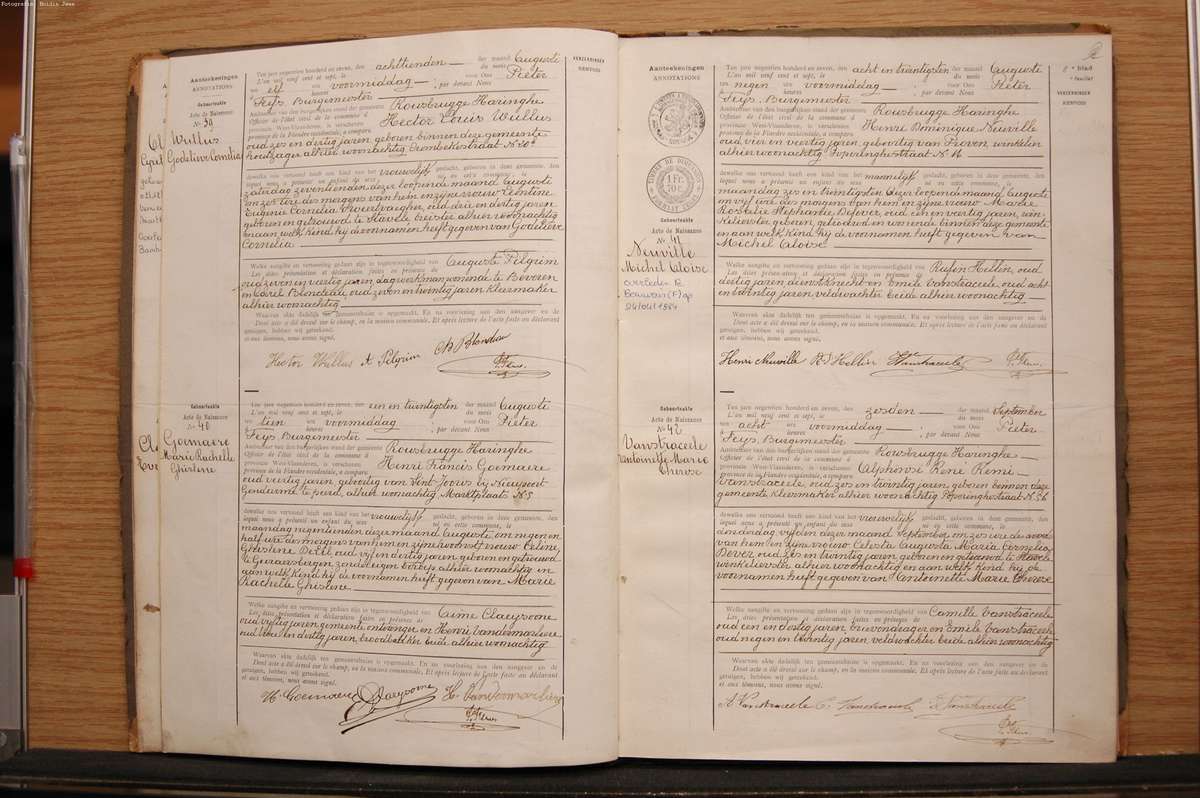 Fotografie: Boidin Jawe
Aanteekeningen
ANNOTATIONS
Geboorteakte
Acte de Naissance
N° 39
Wullus
Godelieve Cornelia
VERZENDINGEN
RENVOIS
Ten jare negentien honderd en zeven, den achttienden der maand Auguste
L'an mil neuf cent et sept, le du mois
ten elf ure voormiddag voor Ons Pieter
heures ; par devant Nous
Feijs Burgemeester
Ambtenaar van den burgerlijken stand der gemeente Rousbrugge Haringhe
Officier de l'état civil de la commune d
provincie West-Vlaanderen, is verschenen Hector Louis Wullus
province de la Flandre occidentale, a comparu
oud zes en dertig jaren, geboren binnen deze gemeente
houtzager alhier woonachtig Crombekestraat N° 20a
dewelke ons vertoond heeft een kind van het vrouwelijk geslacht, geboren in deze gemeente, den
lequel nous a présenté un enfant du sexe né en cette commune, le
zaterdag zeventienden dezer loopende maand Auguste
om zes ure des morgens van hem en zijne vrouw Leontine
Eugenie Cornelia Sweertvaegher, oud drie en dertig jaren
geboren en getrouwd te Stavele breister alhier woonachtig
en aan welk kind hij de voornamen heeft gegeven van Godelieve
Cornelia
Welke aangifte en vertooning gedaan zijn in tegenwoordigheid van Auguste Pilgrim
Les dites présentation et déclaration faites en présence de
oud zeven en veertig jaren dagwerkman wonende te Beveren
en Carel Blondeau, oud zeven en twintig jaren kleermaker
alhier woonachtig
Waarvan akte dadelijk ten gemeentehuize is opgemaakt. En na voorlezing aan den aangever en de
Dont acte a été dressé sur le champ, en la maison communale. Et après lecture de l'acte faite au déclarant
getuigen, hebben wij geteekend.
et aux témoins, nous avons signé.
Hector Wullus A Pilgrim Ch Blondeau
P. Feys
Geboorteakte
Acte de Naissance
N° 40
Goemaere
Marie Rachelle
Ghislene
Ten jare negentien honderd en zeven, den een en twintigsten der maand Auguste
L'an mil neuf cent et sept, le du mois
ten tien ure voormiddag voor Ons Pieter
heures ; par devant Nous
Feijs Burgemeester
Ambtenaar van den burgerlijken stand der gemeente Rousbrugge Haringhe
Officier de l'état civil de la commune d
provincie West-Vlaanderen, is verschenen Henri Francis Goemaere
province de la Flandre occidentale, a comparu
oud veertig jaren, geboortig van Sint Joris bij Nieuport
Gendarme te peerd, alhier woonachtig Marktplaats N° 5
dewelke ons vertoond heeft een kind van het vrouwelijk geslacht, geboren in deze gemeente, den
lequel nous a présenté un enfant du sexe né en cette commune, le
maandag negentienden dezer maand Auguste om negen en
half ure des morgens van hem en zijne vrouw Celine
Ghislene Dell, oud vijf en dertig jaren, geboren en getrouwd
te Geraersbergen, zonder eigen bedrijf alhier woonachtig en
aan welk kind hij de voornamen heeft gegeven van Marie
Rachelle Ghislene
Welke aangifte en vertooning gedaan zijn in tegenwoordigheid van Aimé Claeysoone
Les dites présentation et déclaration faites en présence de
oud vijftig jaren, gemeente ontvanger en Henri Vandermarliere
oud en dertig jaren, broodbakker beide alhier woonachtig
Waarvan akte dadelijk ten gemeentehuize is opgemaakt. En na voorlezing aan den aangever en de
Dont acte a été dressé sur le champ, en la maison communale. Et après lecture de l'acte faite au déclarant
getuigen, hebben wij geteekend.
et aux témoins, nous avons signé.
H. Goemaere Claeysoone H. Vandermarliere
P. Feys
Aanteekeningen
ANNOTATIONS
1 Fr.
70 c.
Geboorteakte
Acte de Naissance
N° 41
Neuville
Michel Aloise
overleden te
Bouvain (F) op
24/04/1984
2e blad
feuillet
VERZENDINGEN
RENVOIS
Ten jare negentien honderd en zeven, den acht en twintigsten der maand Auguste
L'an mil neuf cent et sept, le du mois
ten negen ure voormiddag voor Ons Pieter
heures ; par devant Nous
Feijs Burgemeester
Ambtenaar van den burgerlijken stand der gemeente Rousbrugge Haringhe
Officier de l'état civil de la commune d
provincie West-Vlaanderen, is verschenen Henri Dominique Neuville
province de la Flandre occidentale, a comparu
oud vier en veertig jaren, geboortig van Proven, winkelier
alhier woonachtig Poperinghestraat N° 16
dewelke ons vertoond heeft een kind van het mannelijk geslacht, geboren in deze gemeente, den
lequel nous a présenté un enfant du sexe né en cette commune, le
maandag zes en twintigsten dezer loopende maand Auguste
om vijf ure des morgens van hem en zijne vrouw Marie
Rosalie Stephanie Defever, oud een en veertig jaren, win-
kelierster geboren, gehuwd en wonende binnen deze gemeente
en aan welk kind hij de voornamen heeft gegeven van
Michel Aloise
Welke aangifte en vertooning gedaan zijn in tegenwoordigheid van Rufin Hellin, oud
Les dites présentation et déclaration faites en présence de
dertig jaren dienstknecht en Emile Vanstraceele, oud acht
en twintig jaren, veldwachter beide alhier woonachtig
Waarvan akte dadelijk ten gemeentehuize is opgemaakt. En na voorlezing aan den aangever en de
Dont acte a été dressé sur le champ, en la maison communale. Et après lecture de l'acte faite au déclarant
getuigen, hebben wij geteekend.
et aux témoins, nous avons signé.
Henri Neuville R S Hellin E Vanstraceele
P. Feys
Geboorteakte
Acte de Naissance
N° 42
Vanstraceele
Antoinette Marie
Therese
Ten jare negentien honderd en zeven, den zesden der maand September
L'an mil neuf cent et sept, le du mois
ten acht ure voormiddag voor Ons Pieter
heures ; par devant Nous
Feijs Burgemeester
Ambtenaar van den burgerlijken stand der gemeente Rousbrugge Haringhe
Officier de l'état civil de la commune d
provincie West-Vlaanderen, is verschenen Alphonse René Remi
province de la Flandre occidentale, a comparu
Vanstraceele, oud zes en twintig jaren, geboren binnen deze
gemeente kleermaker alhier woonachtig Poperinghestraat N° 56
dewelke ons vertoond heeft een kind van het vrouwelijk geslacht, geboren in deze gemeente, den
lequel nous a présenté un enfant du sexe né en cette commune, le
donderdag vijfden dezer maand September om zes ure des
van hem en zijne vrouw Celesta Augusta Maria Cornelia
Dever oud zes en twintig jaren, geboren en getrouwd te Stavele
winkelierster alhier woonachtig en aan welk kind hij de
voornamen heeft gegeven van Antoinette Marie Therese
Welke aangifte en vertooning gedaan zijn in tegenwoordigheid van Camille Vanstraceele
Les dites présentation et déclaration faites en présence de
oud een en dertig jaren, brievendrager en Emile Vanstraceele
oud negen en twintig jaren, veldwachter beide alhier woonachtig
Waarvan akte dadelijk ten gemeentehuize is opgemaakt. En na voorlezing aan den aangever en de
Dont acte a été dressé sur le champ, en la maison communale. Et après lecture de l'acte faite au déclarant
getuigen, hebben wij geteekend.
et aux témoins, nous avons signé.
A Vanstraceele C. Vanstraceele E Vanstraceele
P. Feys